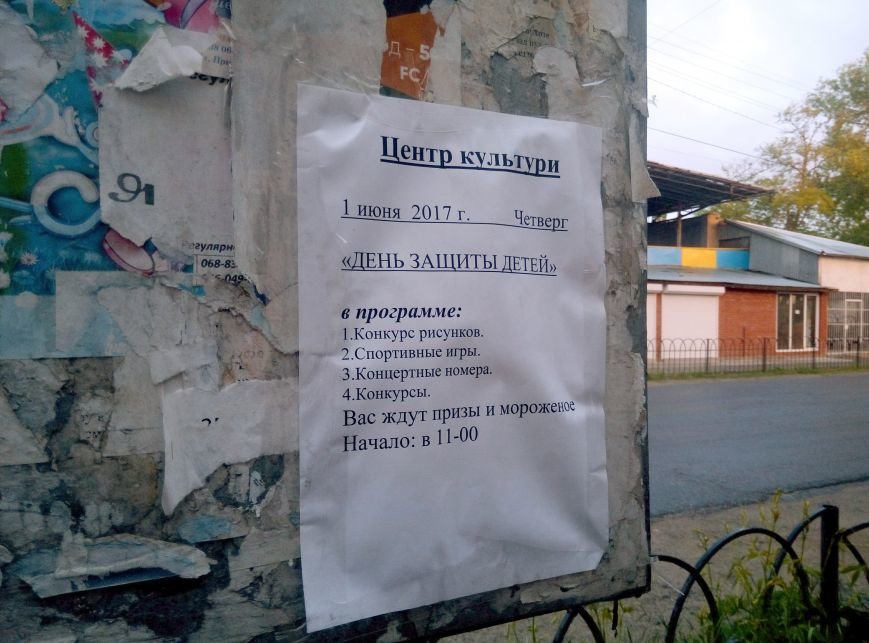 Центр культури
1 июня 2017 г. Четверг
«ДЕНЬ ЗАЩИТЫ ДЕТЕЙ»
в программе:
1.Конкурс рисунков.
2.Спортивные игры.
3.Концертные номера.
4.Конкурсы.
Вас ждут призы и мороженое
Начало: в 11-00
Д - 5
FC
Регулярн
068-8